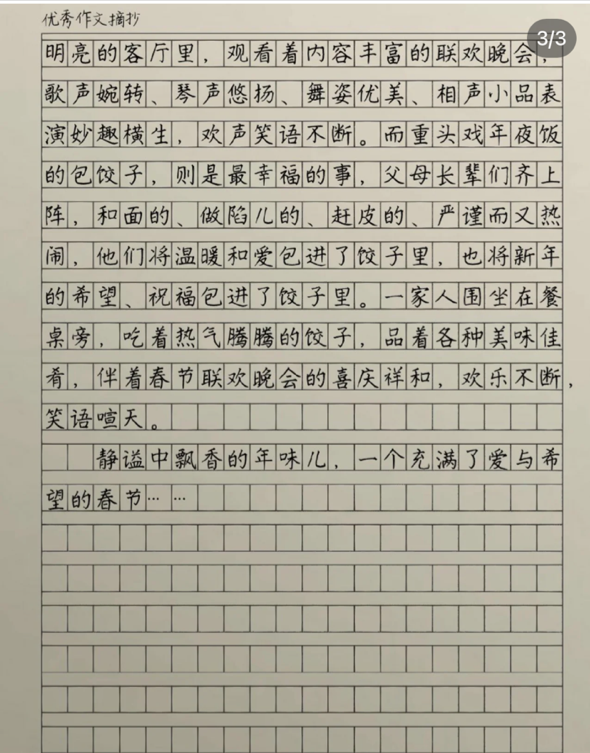 优秀作文摘抄
3/3
明亮的客厅里，观看着内容丰富的联欢晚会，
歌声婉转、琴声悠扬、舞姿优美、相声小品表
演妙趣横生，欢声笑语不断。而重头戏年夜饭
的包饺子，则是最幸福的事，父母长辈们齐上
阵，和面的、做陷儿的、赶皮的、严谨而又热
闹，他们将温暖和爱包进了饺子里，也将新年
的希望、祝福包进了饺子里。一家人围坐在餐
桌旁，吃着热气腾腾的饺子，品着各种美味佳
肴，伴着春节联欢晚会的喜庆祥和，欢乐不断，
笑语喧天。
静谧中飘香的年味儿，一个充满了爱与希
望的春节……